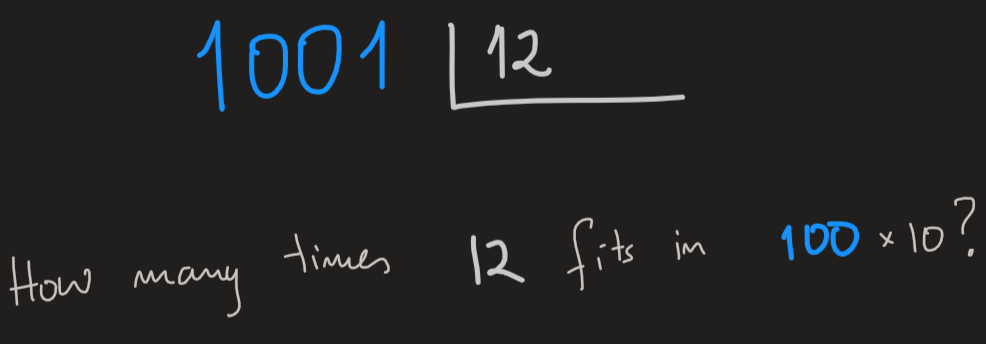 1001 12
How many times 12 fits in 100 × 10?